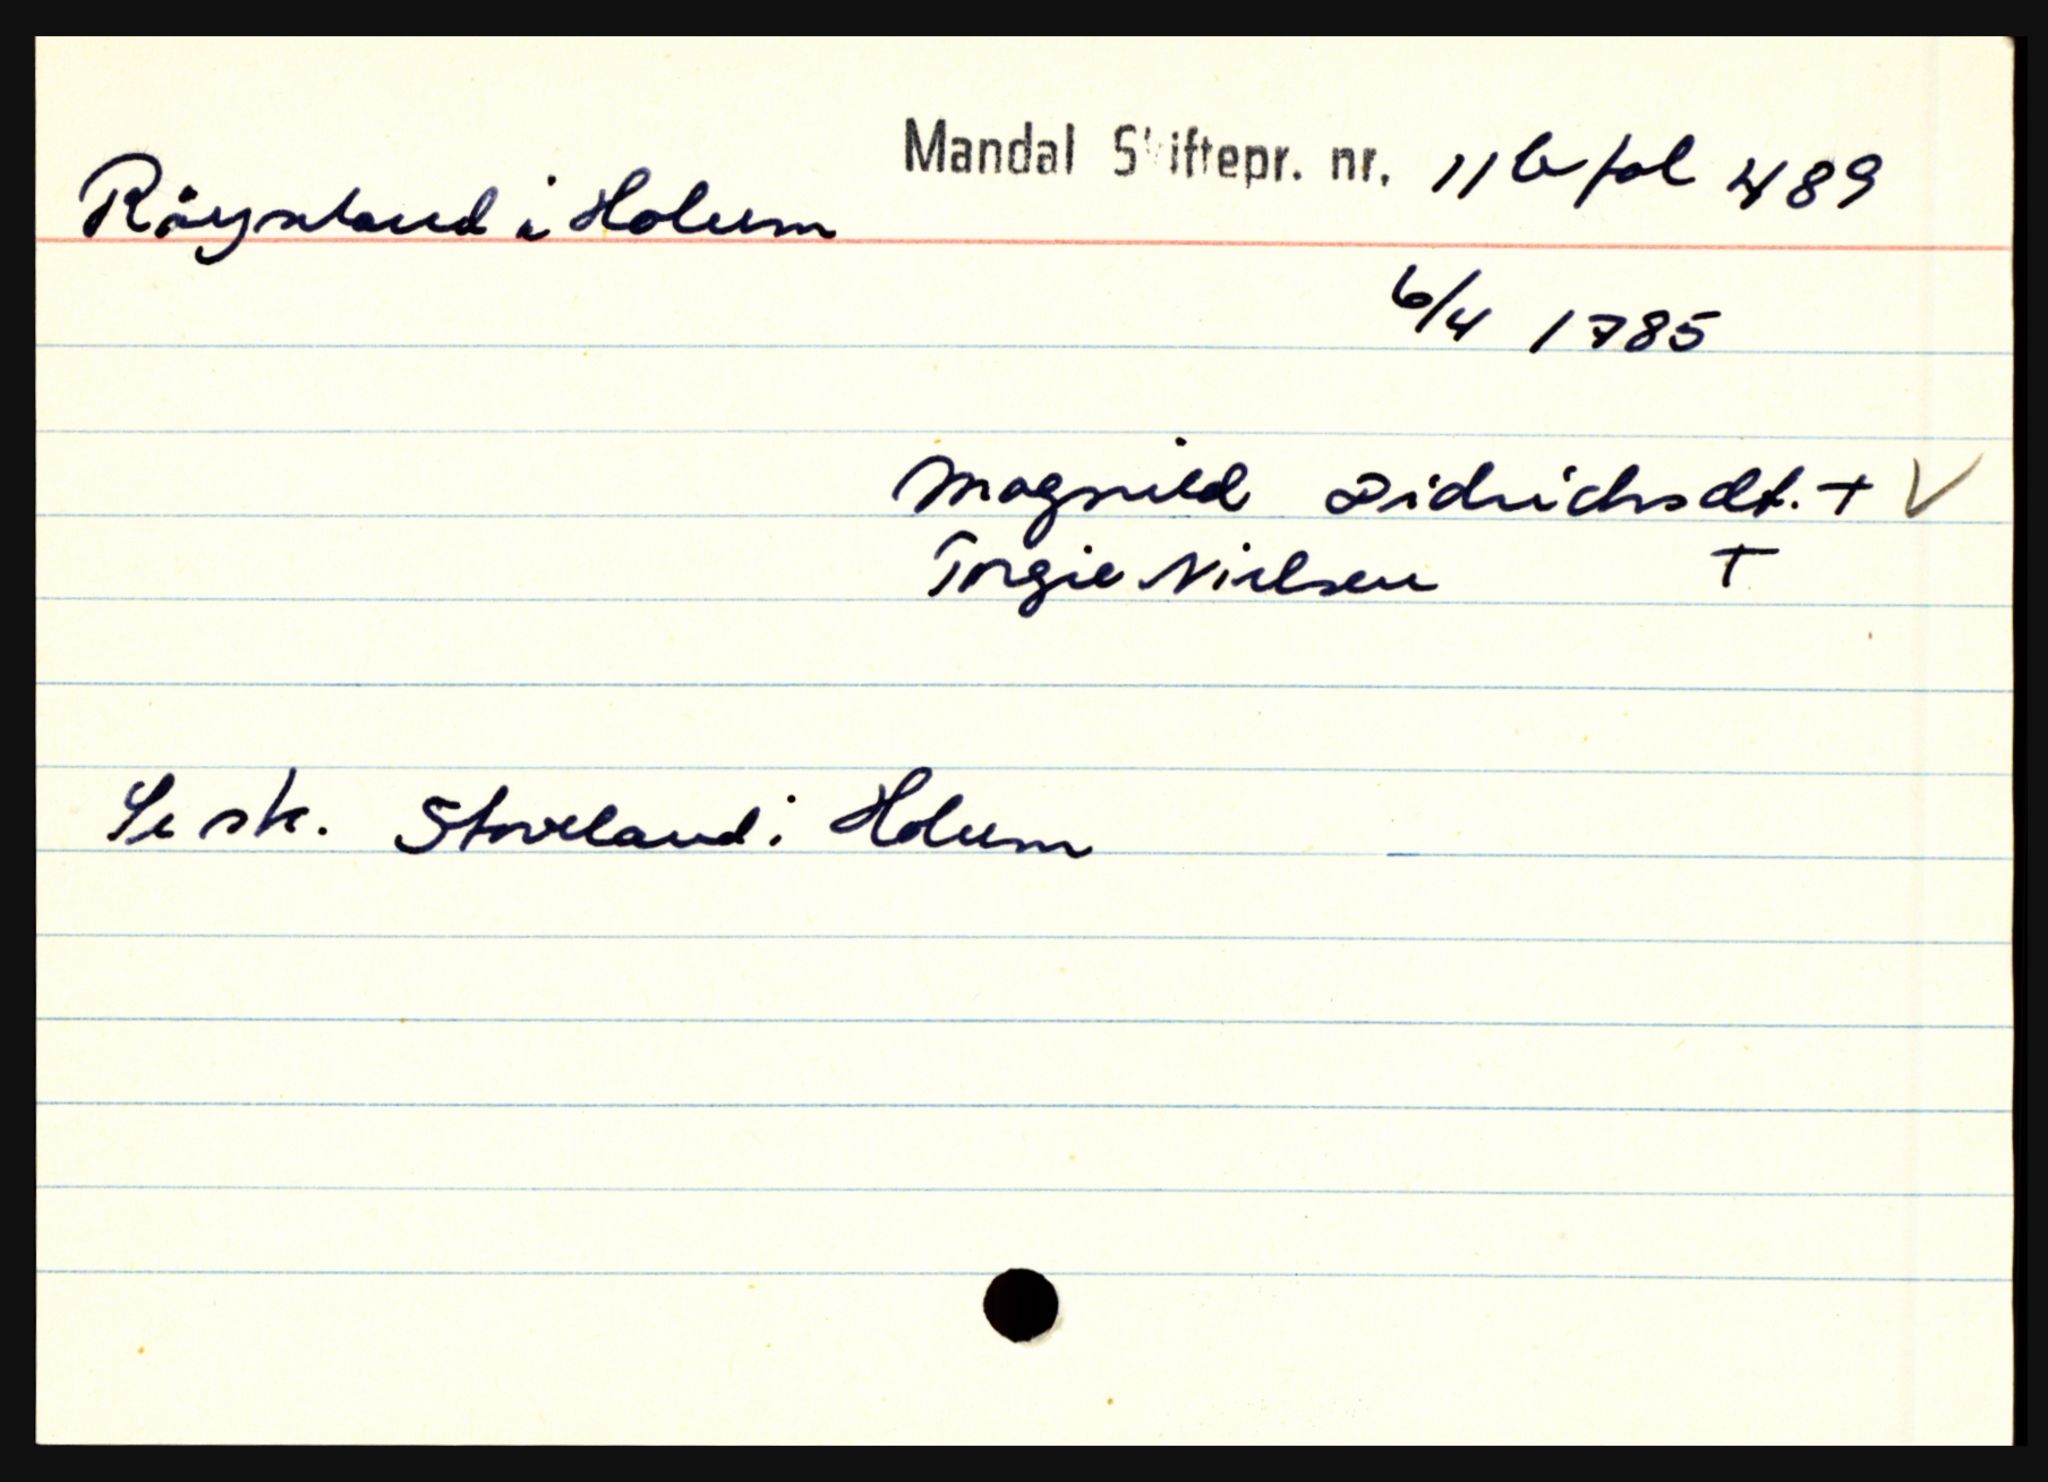 Mandal Skiftepr. nr. 11 b fol 489
Röynland i Holum
6/4 1785
Magnild Didrichsdt. + V
Torgie Nielsen +
Se sk. Stoveland i Holum